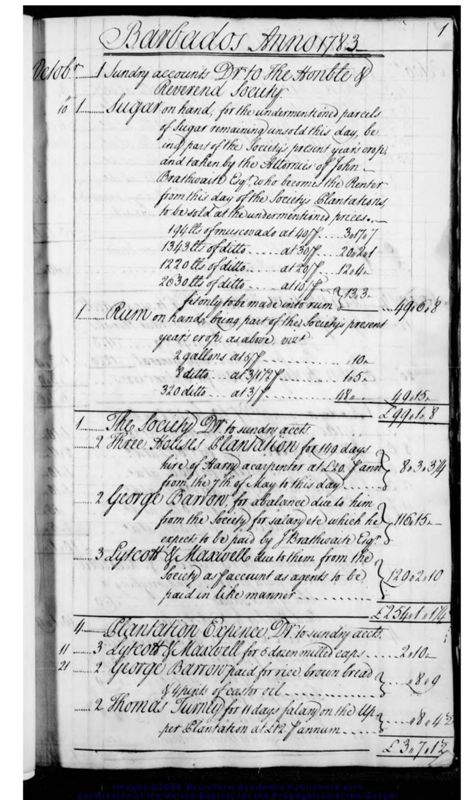 1
Barbados Anno 1783
Octobr. 1 Sundry accounts Dr. to The Honble &
Reverend Society
10 1 Sugar on hand, for the undermentioned parcels
of Sugar remaining unsold this day, be
ing part of the Society's present year's crop,
and taken by the Attornies of John
Brathwaite Esqr. who becomes the Renter
from this day of the Society's Plantations,
to be sold at the undermentioned prices.
194 lbs of muscovado at 40/
1343 lbs of ditto at 30/ 20.2.1
1220 lbs of ditto at 20/ 12.4.
2630 lbs of ditto at 10/ 13.3.
fit only to be made into rum 49.6.8
1 Rum on hand, being part of the Society's present
year's crop, as above vizt.
2 gallons at 5/ 10.
8 ditto at 3/1 1/2 1.5.
320 ditto at 3/ 48. 49.15.
£99.1.8
1 The Society Dr. to sundry accts.
2 Three Houses Plantation for 149 days
hire of Harry a carpenter at £20. annm
from the 7th of May to this day 8.3.3 1/4
2 George Barrow, for a balance due to him
from the Society for salary etc which he
expects to be paid by J Brathwaite Esqr. 116.15.
3 Lytcott & Maxwell due to them from the
Society as account as agents to be
paid in like manner 120.2.10
£254.1.1 1/4
4 Plantation Expence, Dr. to sundry accts.
11 3 Lytcott & Maxwell for 6 dozen milled caps 2.10.
21 2 George Barrow paid for rice, brown bread
& 4 pints of castr oil .8.9
2 Thomas for 11 days salary on the Up
per Plantation at annum .8.4 1/2
£3.7.1 1/2